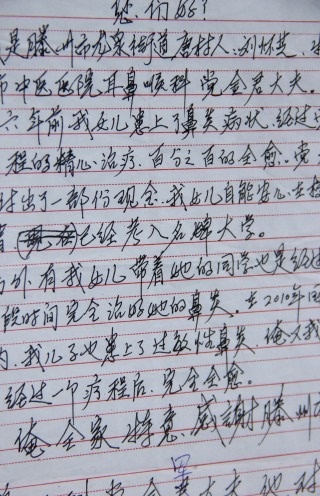 您们好！
是滕州市龙泉街道唐村人：刘怀芝，
市中医医院耳鼻喉科党金君大夫。
六年前，我女儿患上了鼻炎病状，经过
程的精心治疗，百分之百的全愈。党
付出了一部份现金。我女儿自能安心去
已经考入名牌大学。
外，有我女儿带着她的同学也是经过
段时间完全治好她的鼻炎。去2010年
内，我儿子也患上了过敏性鼻炎，俺又
经过一个疗程后，完全全愈。
俺全家特意感謝滕州市